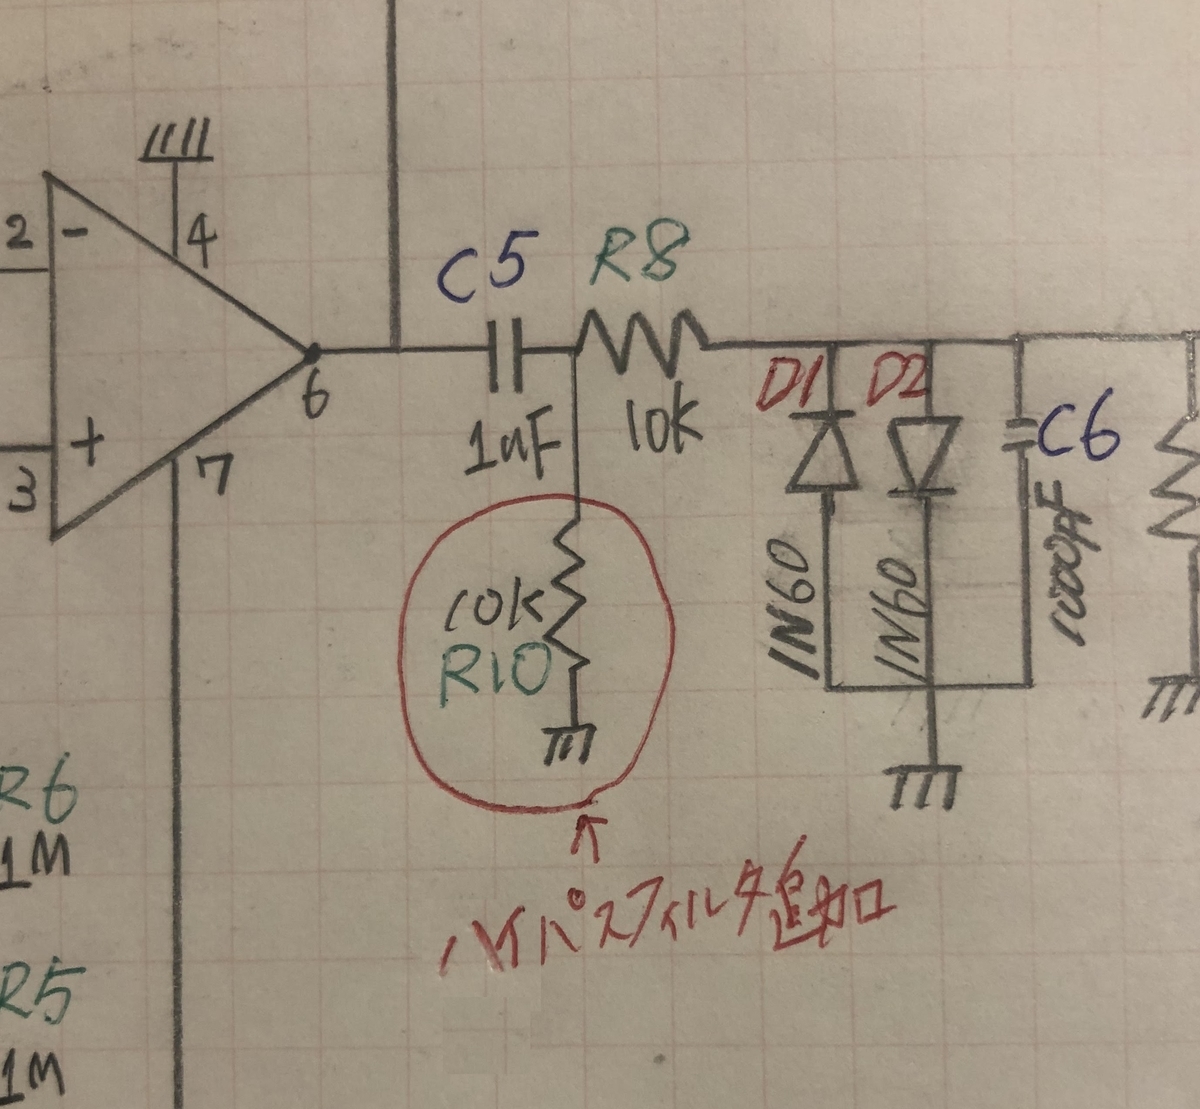 2
-
4
C5
R8
6
D1
D2
1uF
10K
C6
+
3
7
1N60
1N60
1000pF
10K
R10
R6
1M
ハイパスフィルタ追加
R5
1M